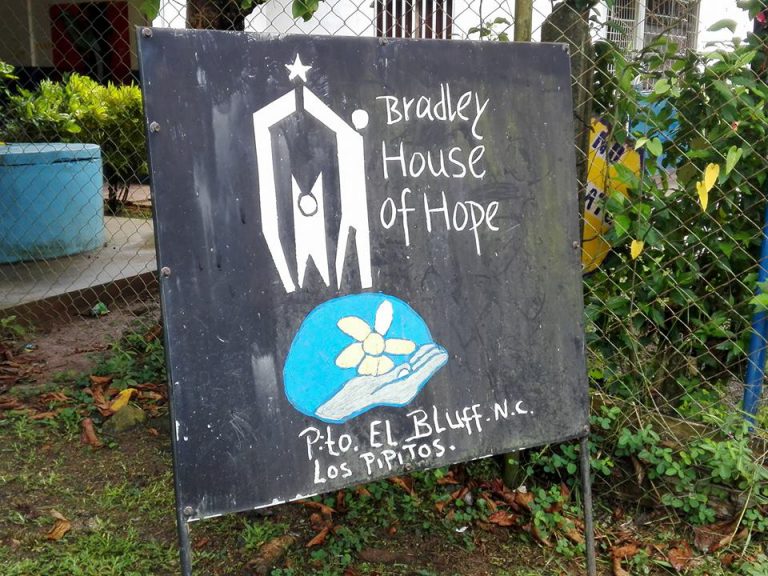 Bradley
House
of Hope
P.to. EL BLuff. N.c.
Los PiPiTos.